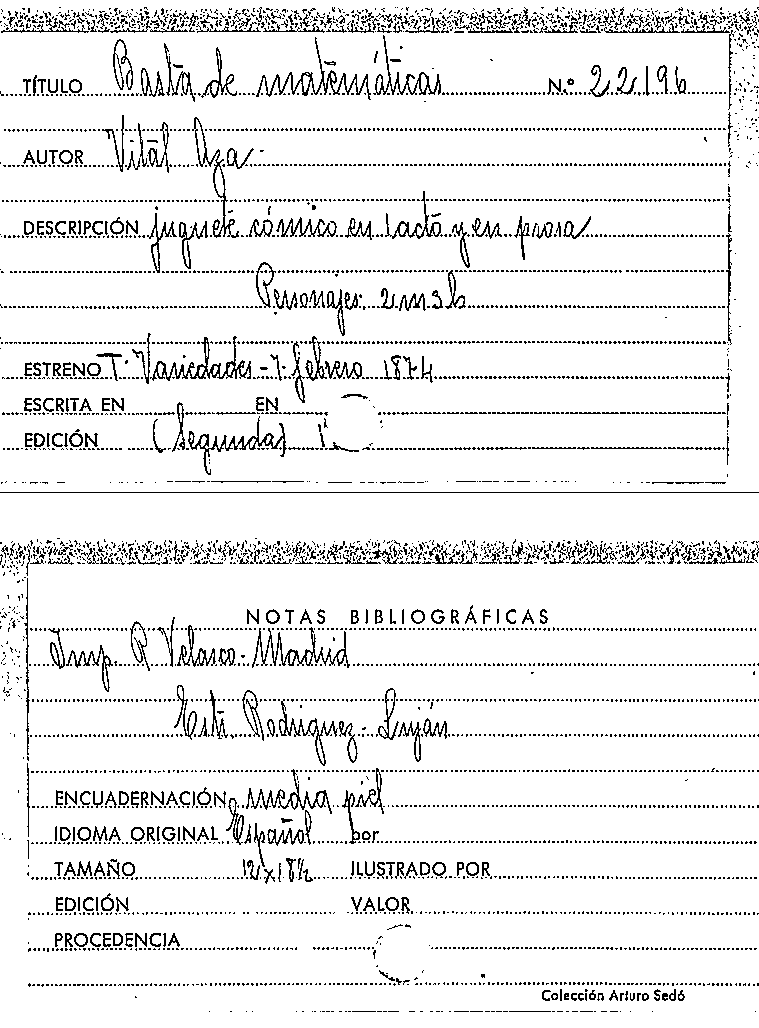 TÍTULO Basta de matemáticas N.º 22196
AUTOR Vital Aza
DESCRIPCIÓN juguete cómico en 1 acto y en prosa
Personajes: 2 m 3 h
ESTRENO T. Variedades - 7 - febrero 1874
ESCRITA EN EN
EDICIÓN (Segunda)
NOTAS BIBLIOGRÁFICAS
Imp. R Velasco - Madrid
Est. Rodriguez - Luján
ENCUADERNACIÓN media piel
IDIOMA ORIGINAL Español por
TAMAÑO 12 x 18½ ILUSTRADO POR
EDICIÓN VALOR
PROCEDENCIA
Colección Arturo Sedó